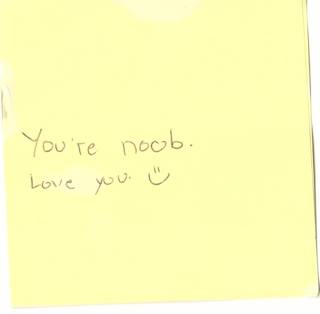 You're noob.
Love you. :)